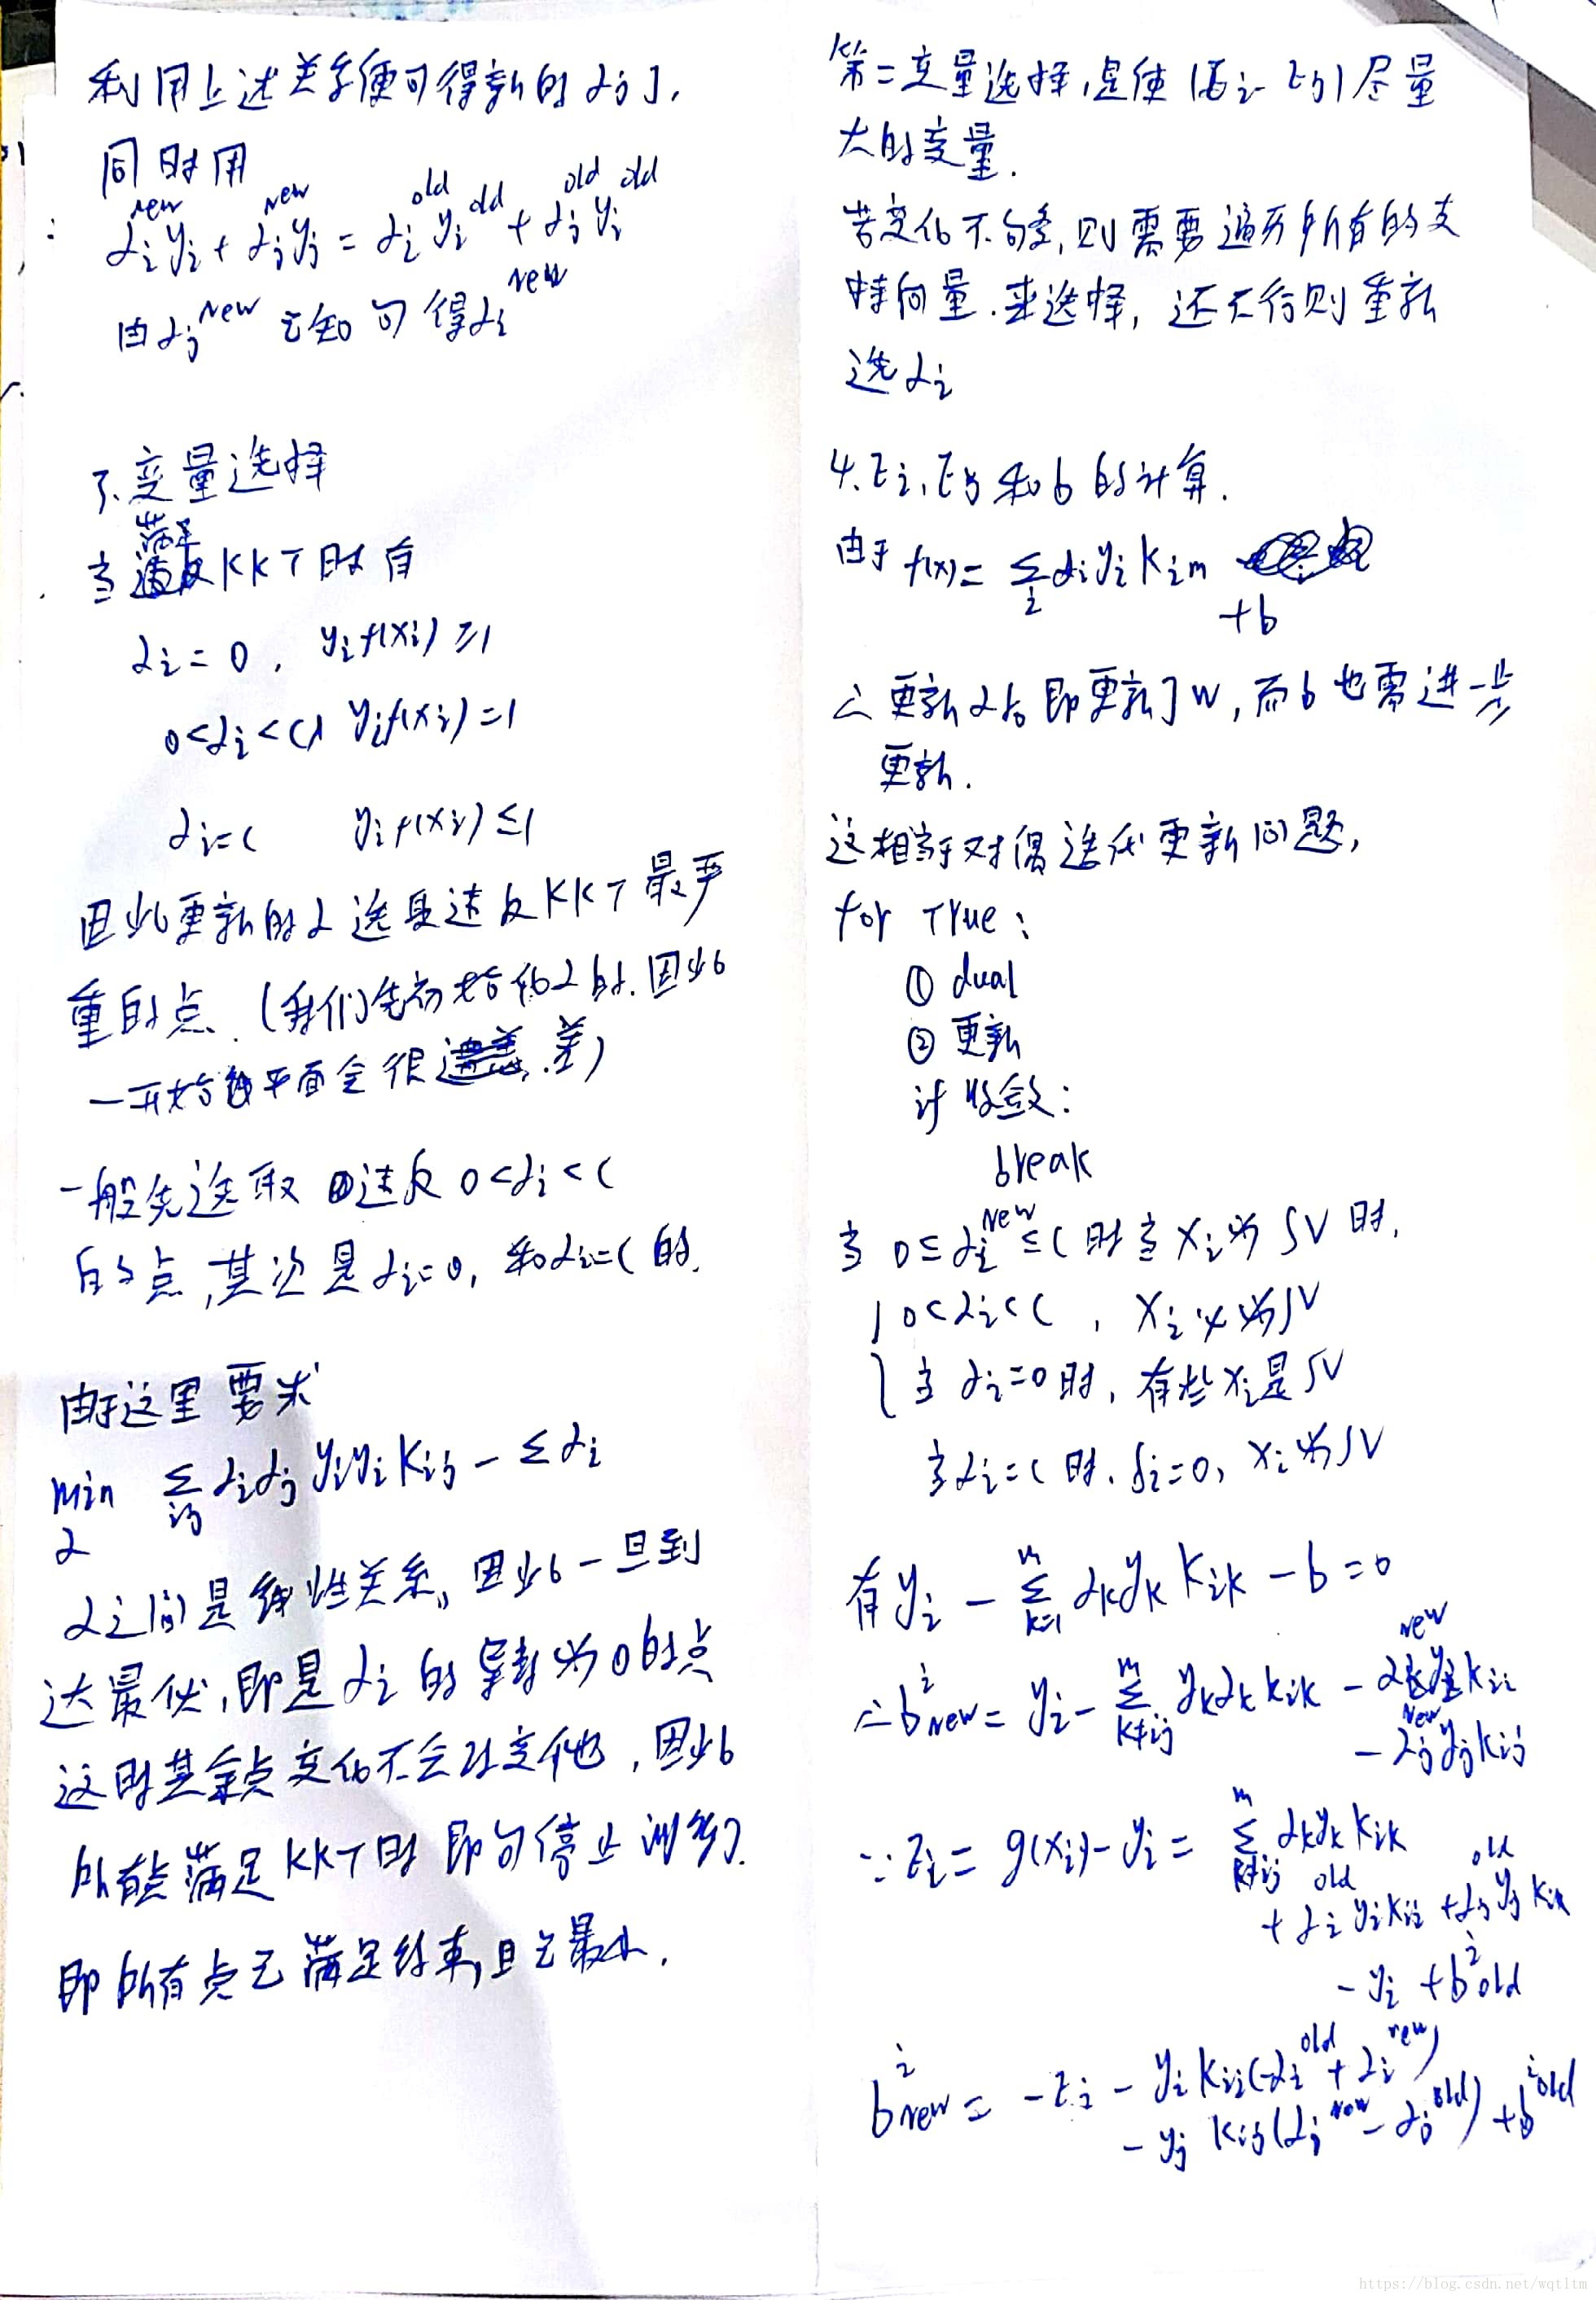 利用上述关系便可得新的αj了,
同时用
αi^new yi + αj^new yj = αi^old yi^old + αj^old yi^old
由αj^new 已知可得αi^new
3.变量选择
当满足KKT时有
αi = 0, yif(xi) ≥1
0<αi<C, yif(xi)=1
αi=C yif(xi)≤1
因此更新的α选取违反KKT最严
重的点. (我们先初始化α的.因此
一开始的平面会很差)
一般先选取违反 0<αi<C
的点,其次是αi=0, 和αi=C的.
由于这里要求
min α Σij αiαj yiyi Kij - Σ αi
αi间是线性关系,因此一旦到
达最优,即是αi的导数为0的点
这时其余点变化不会改变他,因此
所有点满足KKT时即可停止训练了.
即所有点已满足约束,且已最小.
第二变量选择,是使|Ei-Ej|尽量
大的变量.
若变化不够,则需要遍历所有的支
持向量.来选择,还不行则重新
选αi
4.Ei,Ej和b的计算.
由于 f(x)= Σi αiyiKim
+b
∴更新α后即更新了w,而b也需进一步
更新.
这相当于对偶迭代更新问题,
for True:
① dual
② 更新
if 收敛:
break
当 0≤αi^new≤C时当Xi为SV时,
{0<αi<C , Xi必为SV
当αi=0时,有些Xi是SV
当αi=C时.δi=0, Xi为SV
有yi - Σ(k=1..m) αkyk Kik - b=0
∴b^i new = yi - Σ(k≠ij..m) ykαk Kik - αi^new yi Kii
- αj^new yj Kij
∵Ei = g(xi)-yi = Σ(k≠ij..m) αkyk Kik
+ αi^old yiKii + αj^old yj Kik
- yi + b^i old
b^i new = -Ei - yi Kii(-αi^old + αi^new)
- yj Kij(αj^new - αj^old) + b^i old
https://blog.csdn.net/wqtltm